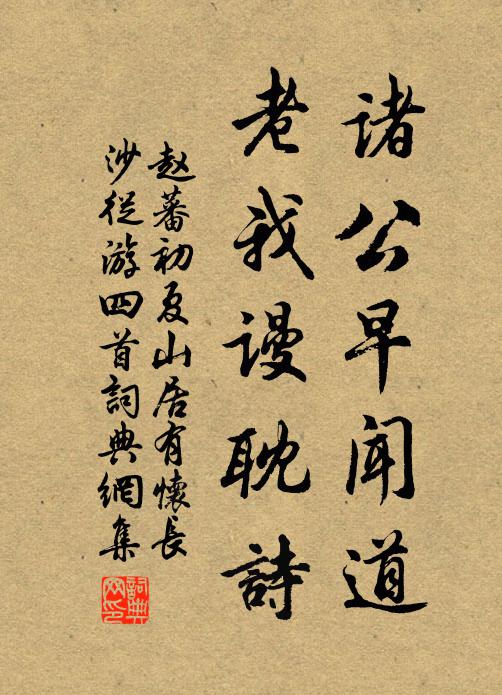 诸公早闻道
老我谩耽詩
赵蕃初夏山居有懷長
沙從游四首詞典網集
詞典网印